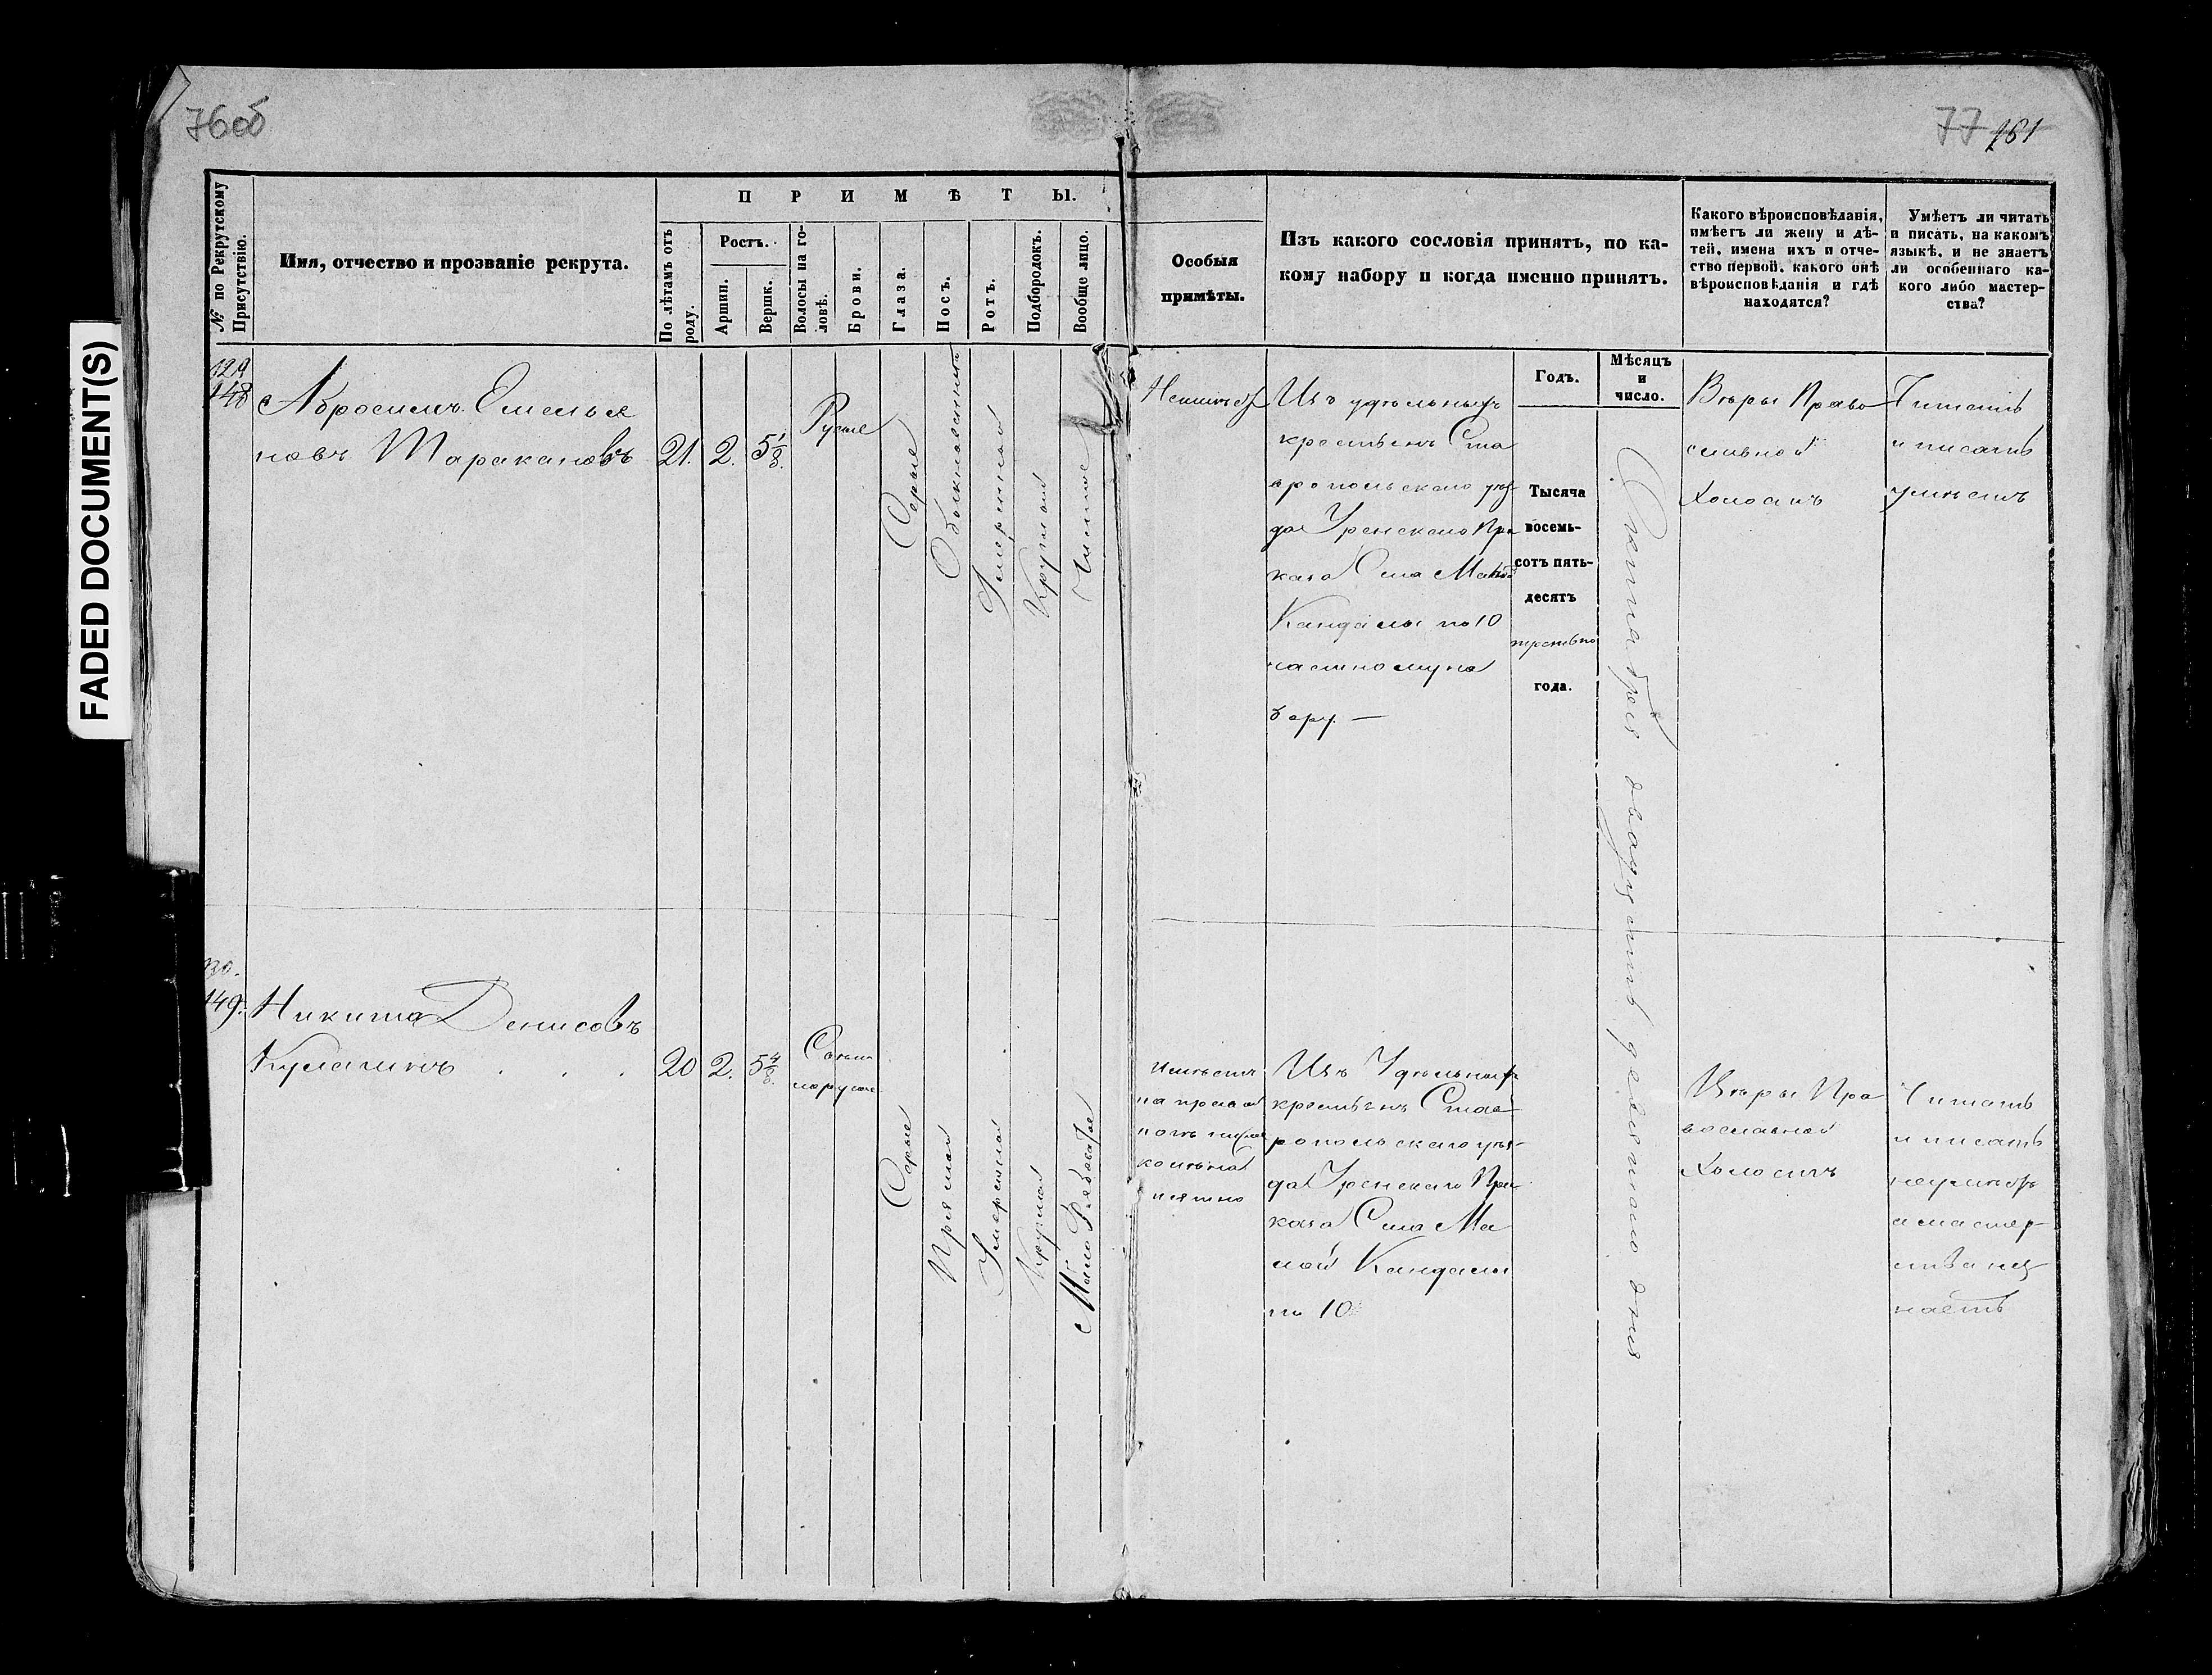 76об
77 161
FADED DOCUMENT(S)
№ по Рекрутскому Присутствію.
Имя, отчество и прозваніе рекрута.
ПРИМѢТЫ.
По лѣтамъ отъ роду.
Ростъ.
Аршин.
Вершк.
Волосы на головѣ.
Брови.
Глаза.
Носъ.
Ротъ.
Подбородокъ.
Вообще лицо.
Особыя
примѣты.
Изъ какого сословія принятъ, по ка-
кому набору и когда именно принятъ.
Какого вѣроисповѣданія,
имѣетъ ли жену и дѣ-
тей, имена ихъ и отче-
ство первой, какого онѣ
вѣроисповѣданія и гдѣ
находятся?
Умѣетъ ли читать
и писать, на какомъ
языкѣ, и не знаетъ
ли особеннаго ка-
кого либо мастер-
ства?
129
148
Абросимъ Емелья
новъ Таракановъ
21.
2.
5 1/8.
Русые
Серые
Обыкновенный
Умеренной
Круглой
Чистое
Неимеетъ
Изъ удельныхъ
крестьянъ Ста
вропольскаго уез
да Уренскаго При
каза Села Малой
Кандалы по 10
частному на
бору. —
Годъ.
Тысяча
восемь-
сотъ пять-
десятъ
третьяго
года.
Мѣсяцъ
и
число.
Сентебря двадцать девятаго дня
Веры Право
славной
Холостъ
Читать
и писать
умеетъ
130.
149.
Никита Денисовъ
Кулагинъ . . .
20
2.
5 4/8.
Светло
русые
Серые
Прямой
Умеренной
Круглой
Мало Рябоватое
Имеетъ
на правой
ноге ниже
колена
пятно
Изъ Удельныхъ
крестьянъ Став
ропольскаго уез
да Уренскаго При
каза Села Ма
лой Кандалы
по 10
Веры Пра
вославной
Холостъ
Читать
и писать
неумеетъ
а мастер
ства не
знаетъ